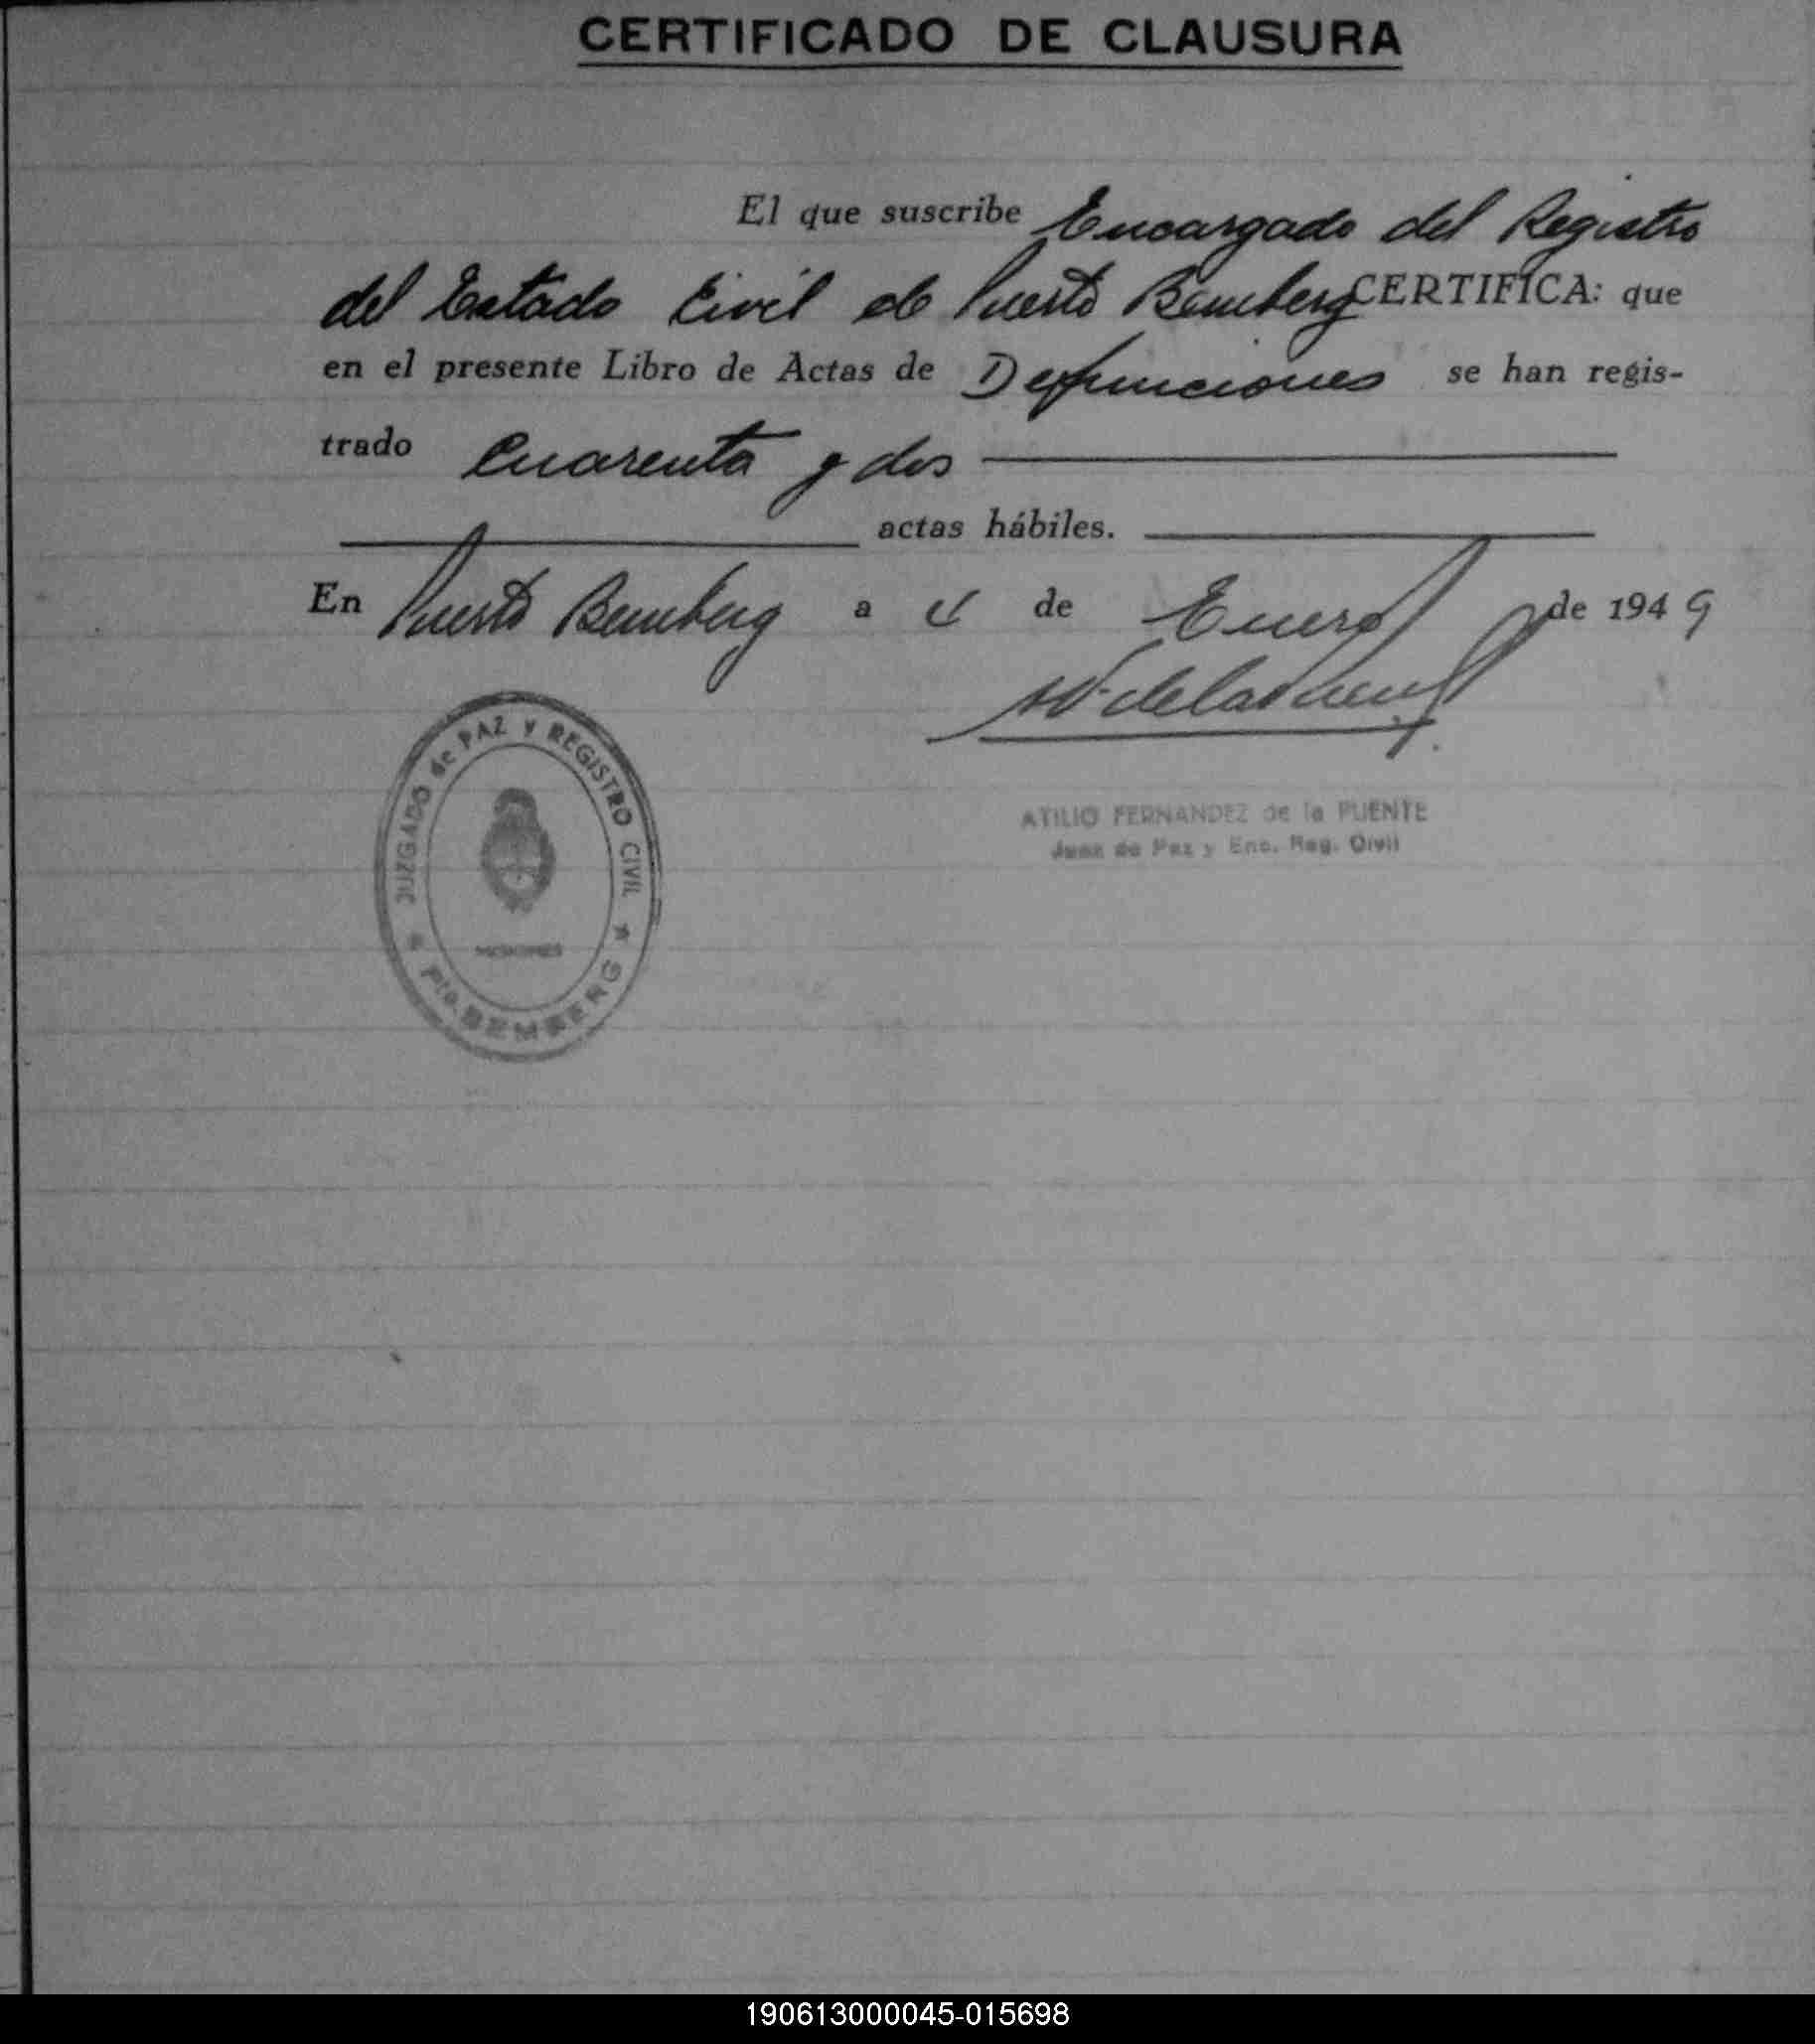 CERTIFICADO DE CLAUSURA
El que suscribe Encargado del Registro
del Estado Civil de Puerto Bemberg CERTIFICA: que
en el presente Libro de Actas de Defunciones se han regis-
trado Cuarenta y dos
actas hábiles.
En Puerto Bemberg a 4 de Enero de 1949
JUZGADO de PAZ Y REGISTRO CIVIL
MISIONES
Pto. BEMBERG
ATILIO FERNANDEZ de la PUENTE
Juez de Paz y Enc. Reg. Civil
190613000045-015698